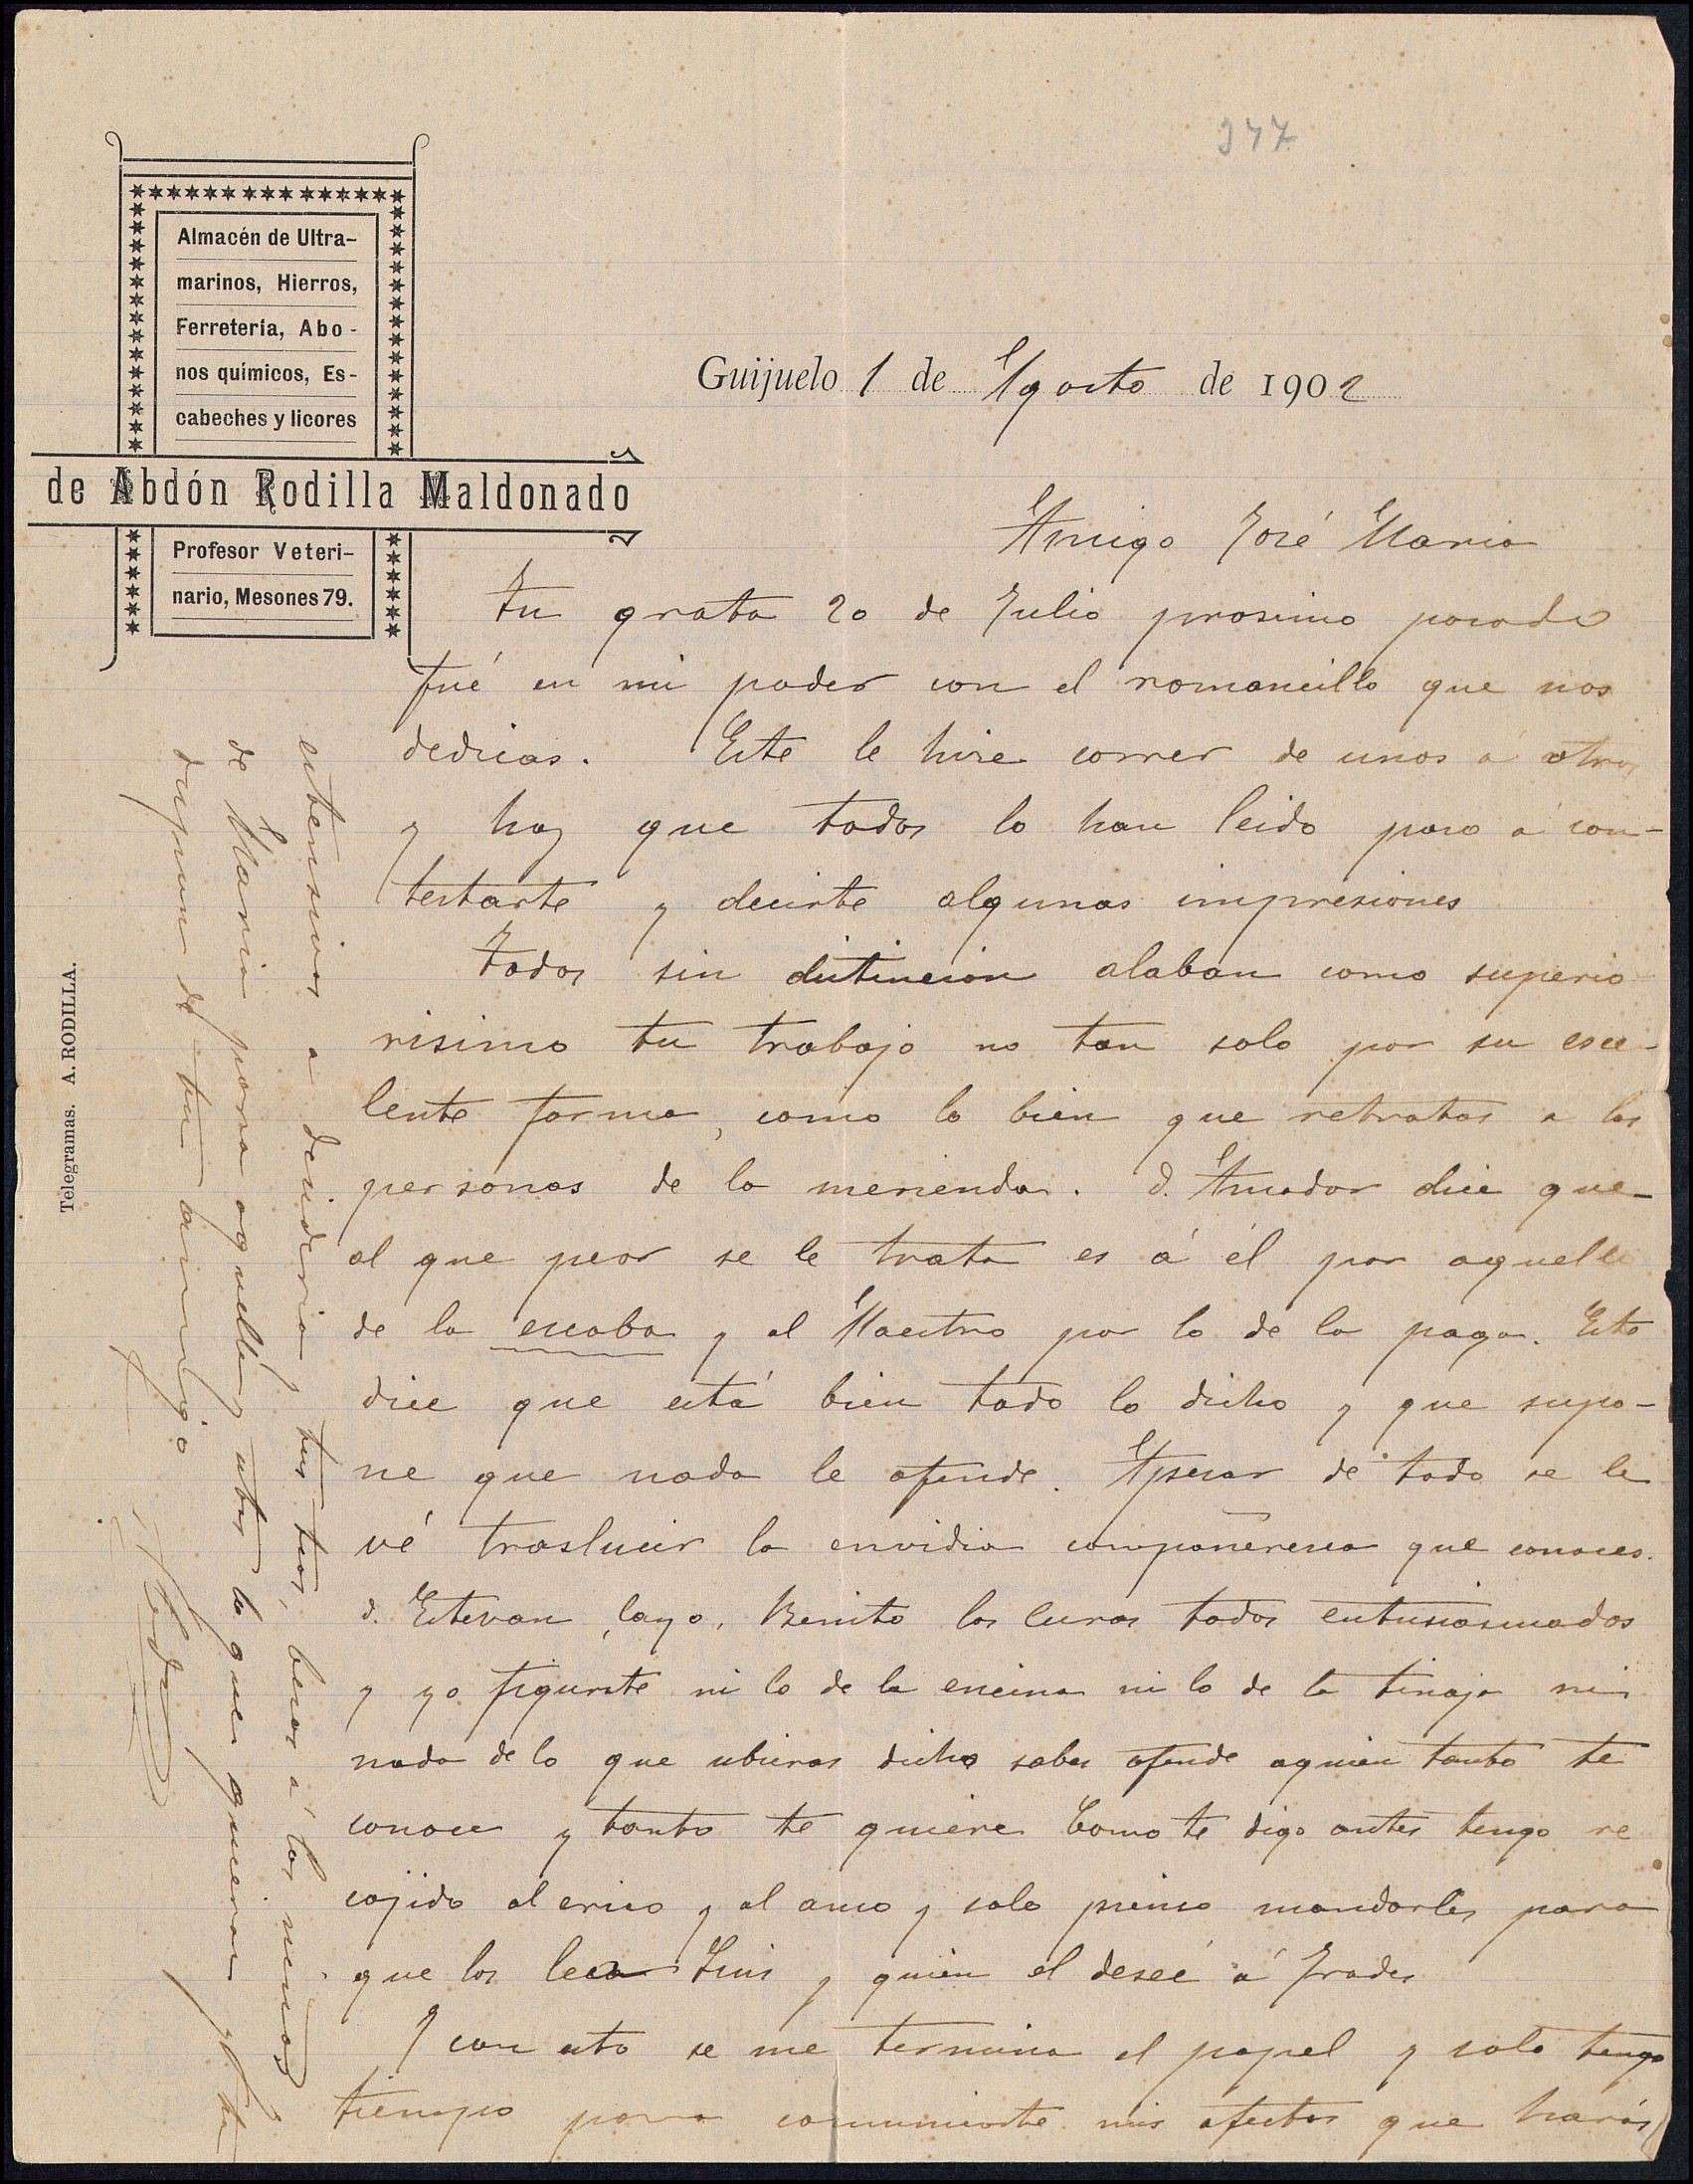 377
Almacén de Ultra-
marinos, Hierros,
Ferretería, Abo-
nos químicos, Es-
cabeches y licores
de Abdón Rodilla Maldonado
Profesor Veteri-
nario, Mesones 79.
Telegramas. A. RODILLA.
Guijuelo 1 de Agosto de 1902
Amigo José Maria
Tu grata 20 de Julio prosimo pasado
fué en mi poder con el romancillo que nos
dedicas. Este le hice correr de unos a otros
y hoy que todos lo han leido paso a con-
testarte y decirte algunas impresiones
Todos sin distincion alaban como superio
risimo tu trabajo no tan solo por su esce-
lente forma, como lo bien que retratas a las
personas de la merienda. D. Amador dice que-
al que peor se le trata es á él por aquello
de la escoba y al Maestro por lo de la paga. Este
dice que está bien todo lo dicho y que supo-
ne que nada le ofende. Apesar de todo se le
vé traslucir la envidia compañeresca que conoces.
d. Estevan, Layo, Benito los Curas todos entusiasmados
y yo figurate ni lo de la encina ni lo de la tinaja ni
nada de lo que ubieras dicho sabes ofende aquien tanto te
conoce y tanto te quiere Como te digo antes tengo re
cojido al erico y al amo y solo pienso mandarles para
que los lea Luis y quien el deseé á Frades
Y con esto se me termina el papel y solo tengo
tiempo para comunicarte mis afectos que harás
estensivos a Desideria tus tios, besos a los niños
de Maria para aquellos y ustes lo que quieran y tu
dispon de tu amigo
Abdon